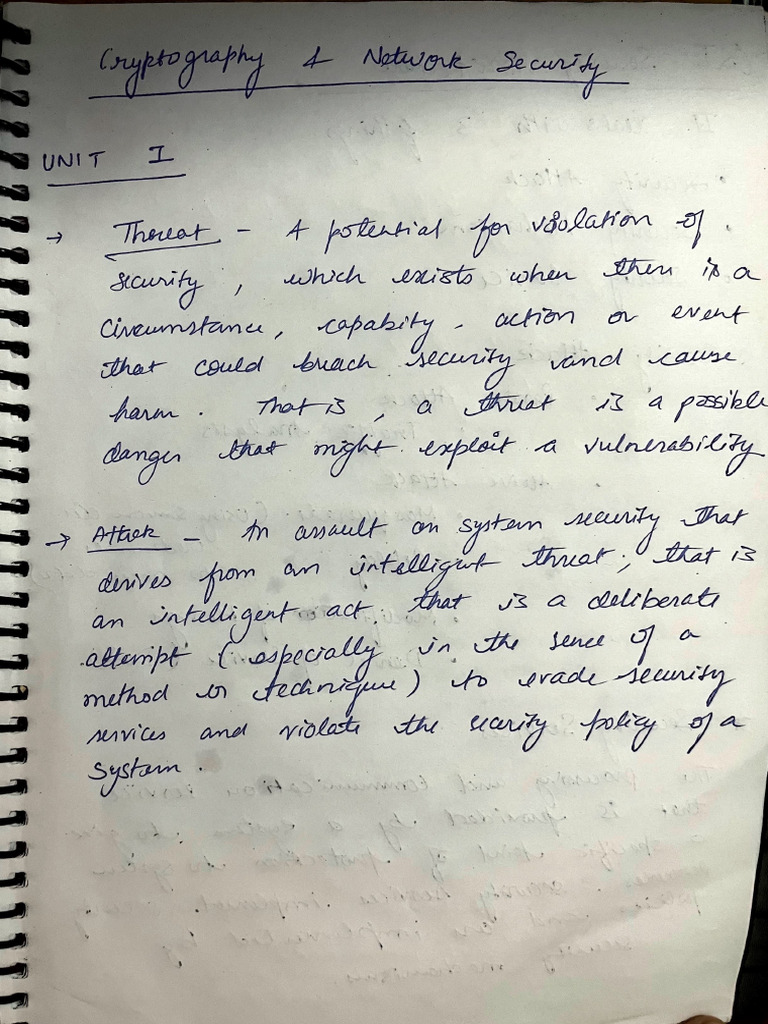 Cryptography & Network Security
UNIT I
→ Threat - A potential for violation of
security, which exists when there is a
circumstance, capabity, action or event
that could breach security and cause
harm. That is, a threat is a possible
danger that might exploit a vulnerability
→ Attack - An assault on system security that
derives from an intelligent threat; that is
an intelligent act that is a deliberate
attempt (especially in the sence of a
method or technique) to evade security
services and violate the security policy of a
system.